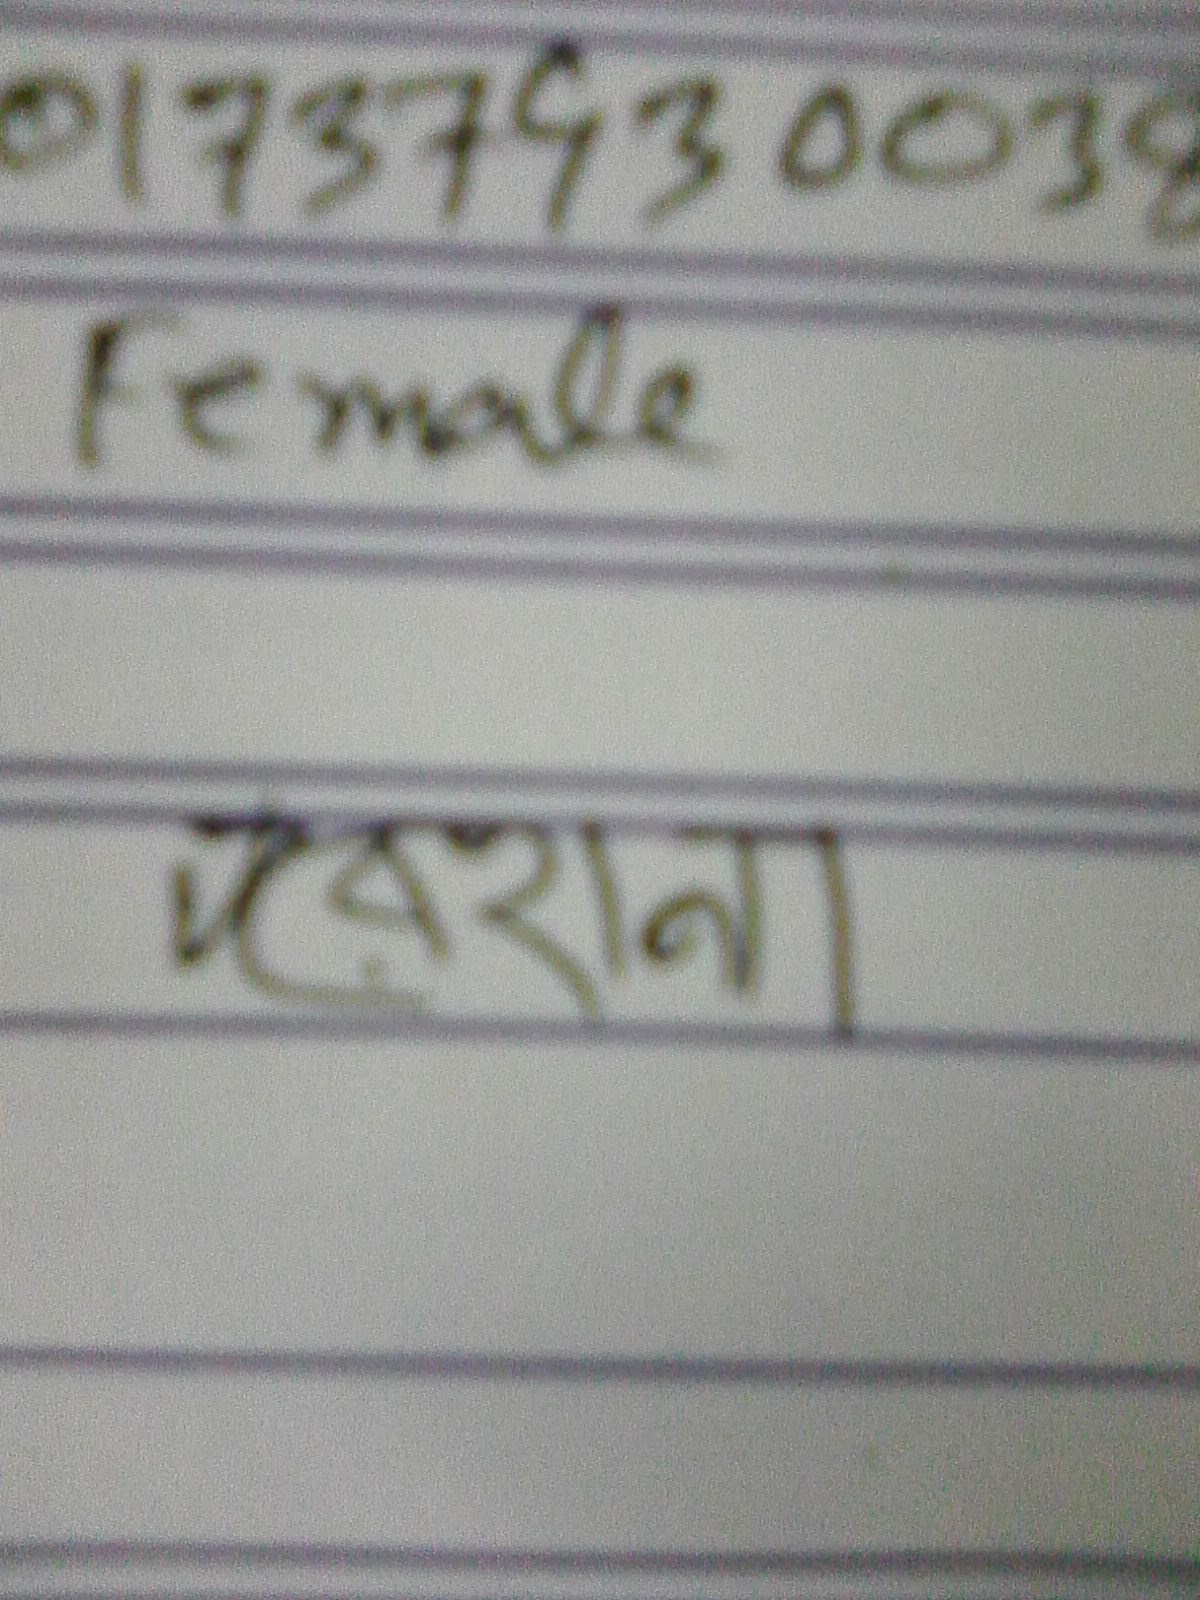 01737930038
Female
ফারহানা